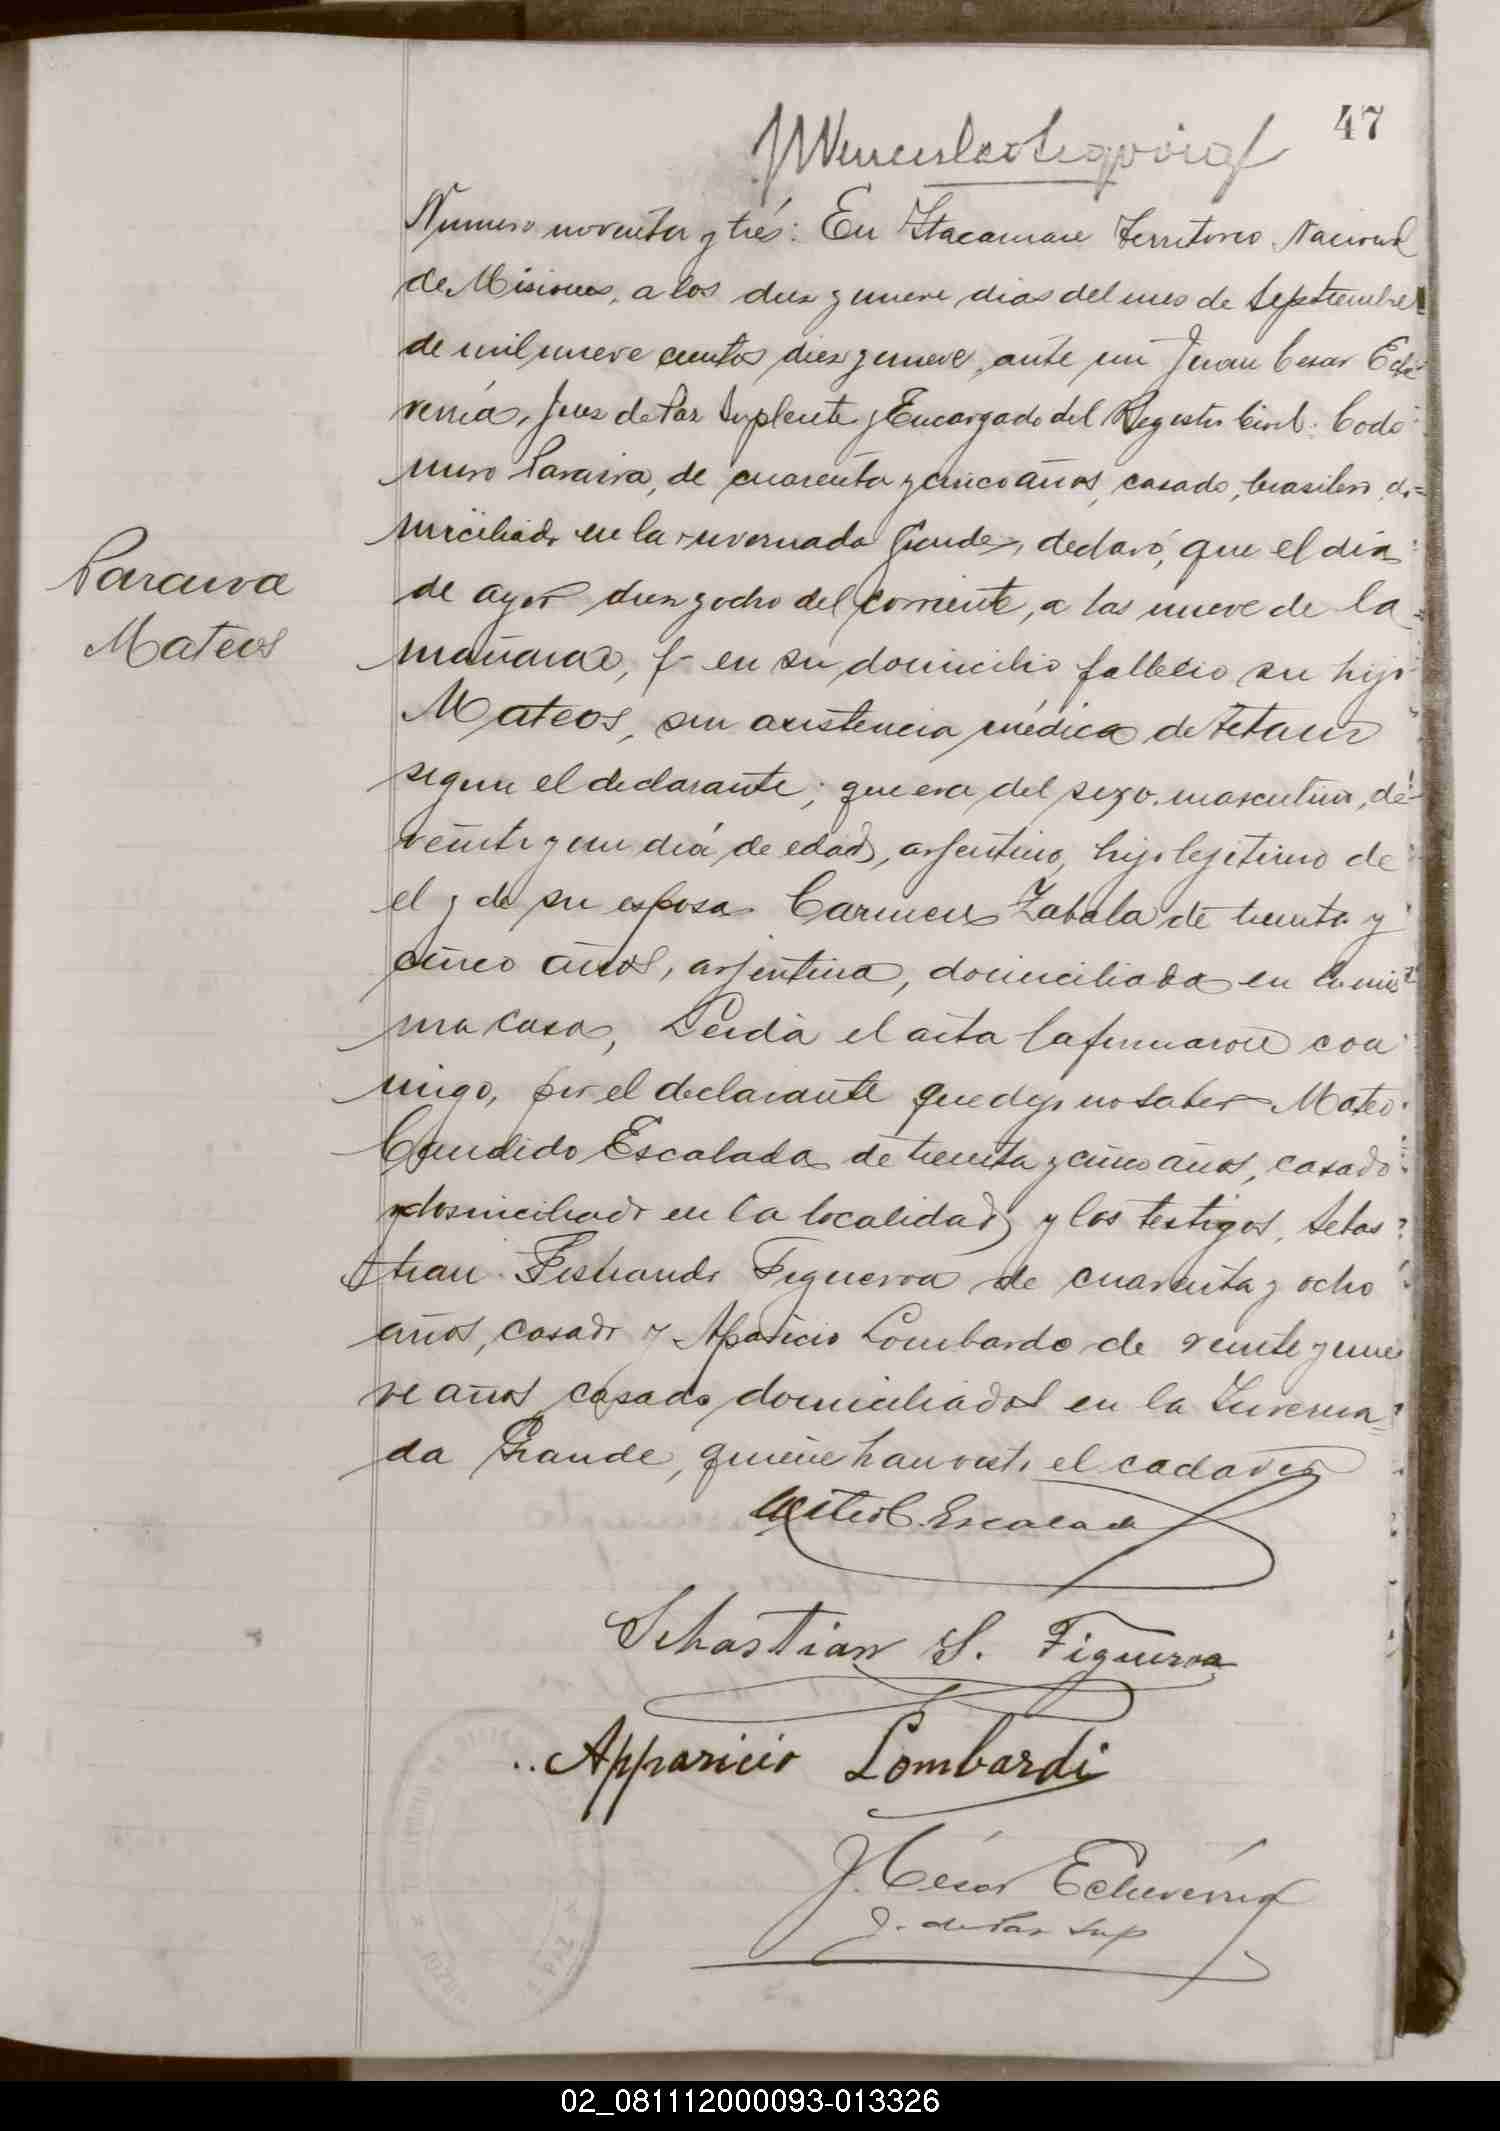 47
Numero noventa y trés: En Itacaruare Territorio Nacional
de Misiones, a los diez y nueve dias del mes de Septiembre
de mil nueve cientos diez y nueve, ante mi Juan Cesar Eche
verria, Juez de Paz Suplente y Encargado del Registro Civil: Codo
miro Paraiva, de cuarenta y cinco años, casado, brasilero, do=
miciliado en la invernada Grande, declaró, que el dia
de ayer diez y ocho del corriente, a las nueve de la
mañana, y en su domicilio fallecio su hijo
Paraiva
Mateos
Mateos, sin asistencia médica de tetano
segun el declarante; que era del sexo masculino, de
veinte y un dia de edad, arjentino, hijo lejitimo de
el y de su esposa Carmen Zabala de treinta y
cinco años, arjentina, domiciliada en la mis
ma casa, Leida el acta la firmaron con
migo, por el declarante que dijo no saber Mateo
Candido Escalada de treinta y cinco años, casado
y domiciliado en la localidad y los testigos, Sebas
tian Figueroa de cuarenta y ocho
años, casado y Aparicio Lombardo de veinte y nue
ve años casado domiciliados en la Inverna
da Grande, quiene han visto el cadaver
Mateo C. Escalada
Sebastian S. Figueroa
Apparicio Lombardi
J. César Echeverria
J. de Paz Sup
02_081112000093-013326